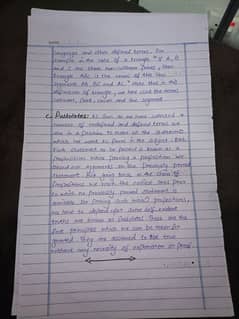 language and other defined terms. For
example in the case of a triangle "If A, B
and C are three non-collinear points, then
triangle ABC is the union of the three
segments AB, BC and AC." Note that in this
definition of triangle, we have used the words
collinear, point, union and line segment.
c. Postulates: As soon as we have collected a
number of undefined and defined terms we
are in a position to make all the statements
which we want to prove in the subject. Each
such statement to be proved is known as a
proposition. While proving a proposition, we
based our arguments on the previously proved
statement. But going back in the chain of
propositions we reach the earliest ones prior
to which no previously proved statement is
available. For proving such initial propositions,
we have to depend upon some self-evident
truths are known as Postulates. These are the
first principles which we can be taken for
granted. They are assumed to be true
without any necessity of explanation or proof.